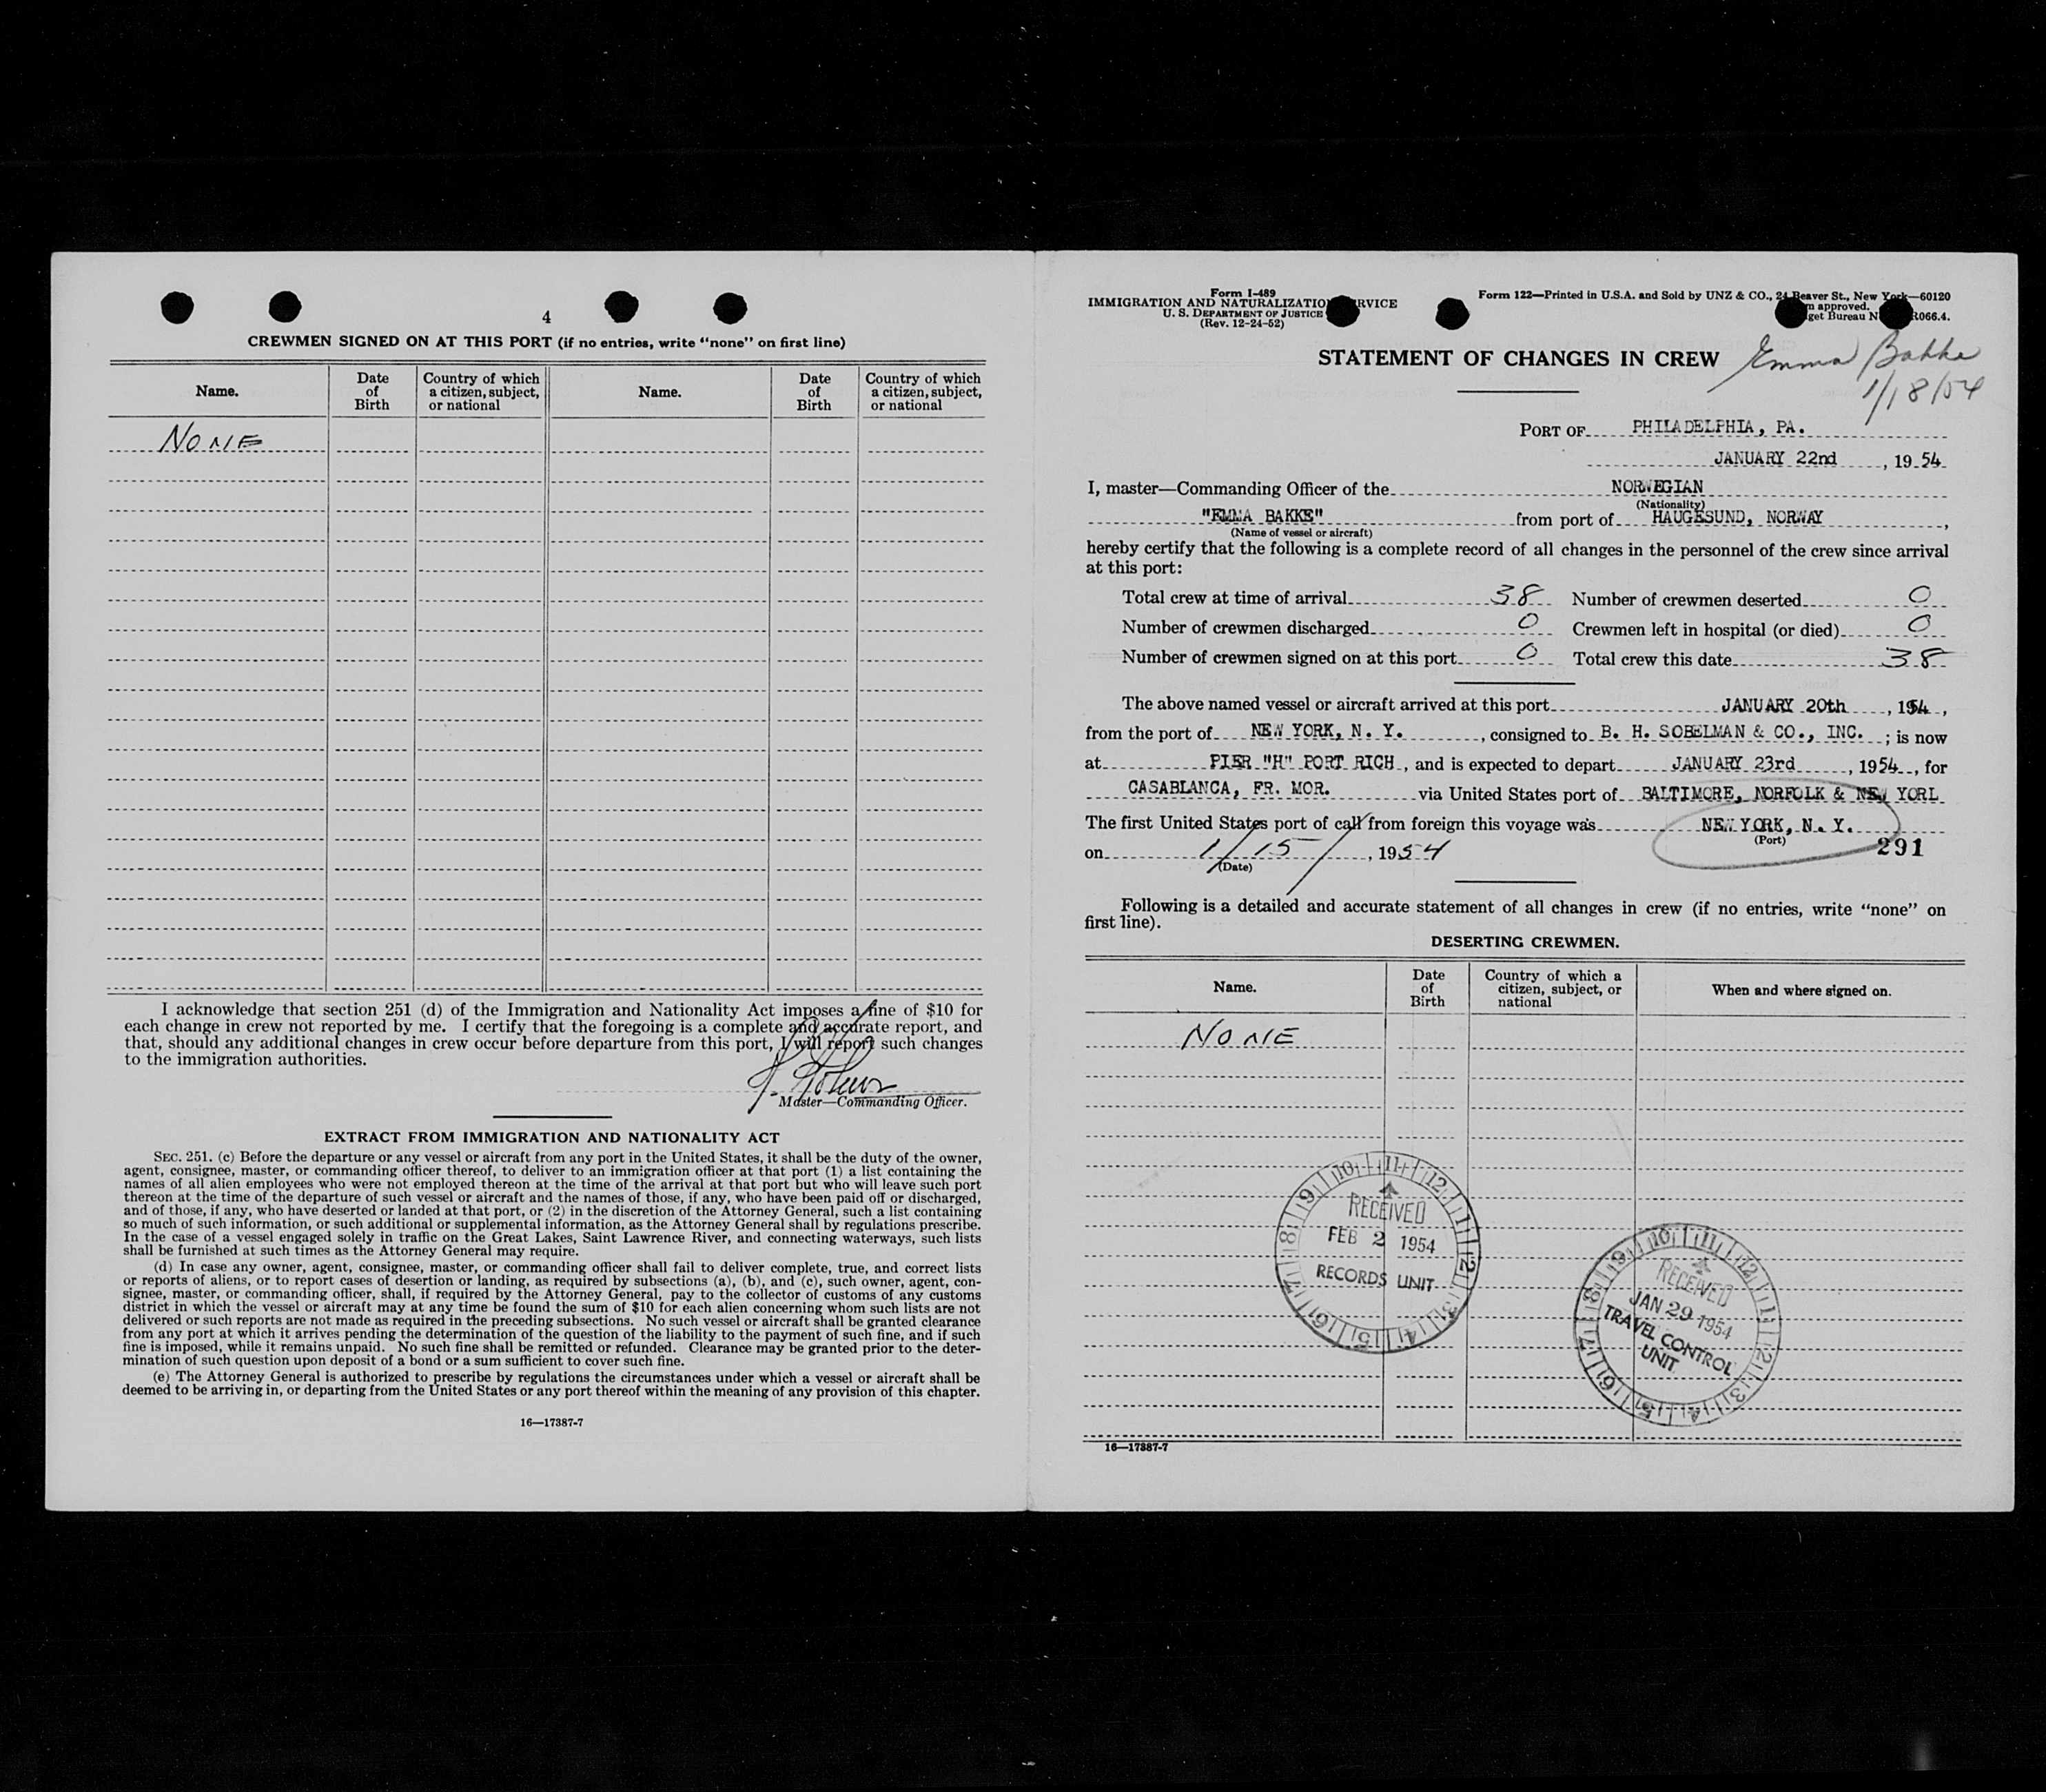 4
CREWMEN SIGNED ON AT THIS PORT (if no entries, write “none” on first line)
Name.
Date of Birth
Country of which a citizen, subject, or national
Name.
Date of Birth
Country of which a citizen, subject, or national
NONE
I acknowledge that section 251 (d) of the Immigration and Nationality Act imposes a fine of $10 for
each change in crew not reported by me. I certify that the foregoing is a complete and accurate report, and
that, should any additional changes in crew occur before departure from this port, I will report such changes
to the immigration authorities.
Master—Commanding Officer.
EXTRACT FROM IMMIGRATION AND NATIONALITY ACT
SEC. 251. (c) Before the departure or any vessel or aircraft from any port in the United States, it shall be the duty of the owner,
agent, consignee, master, or commanding officer thereof, to deliver to an immigration officer at that port (1) a list containing the
names of all alien employees who were not employed thereon at the time of the arrival at that port but who will leave such port
thereon at the time of the departure of such vessel or aircraft and the names of those, if any, who have been paid off or discharged,
and of those, if any, who have deserted or landed at that port, or (2) in the discretion of the Attorney General, such a list containing
so much of such information, or such additional or supplemental information, as the Attorney General shall by regulations prescribe.
In the case of a vessel engaged solely in traffic on the Great Lakes, Saint Lawrence River, and connecting waterways, such lists
shall be furnished at such times as the Attorney General may require.
(d) In case any owner, agent, consignee, master, or commanding officer shall fail to deliver complete, true, and correct lists
or reports of aliens, or to report cases of desertion or landing, as required by subsections (a), (b), and (c), such owner, agent, con-
signee, master, or commanding officer, shall, if required by the Attorney General, pay to the collector of customs of any customs
district in which the vessel or aircraft may at any time be found the sum of $10 for each alien concerning whom such lists are not
delivered or such reports are not made as required in the preceding subsections. No such vessel or aircraft shall be granted clearance
from any port at which it arrives pending the determination of the question of the liability to the payment of such fine, and if such
fine is imposed, while it remains unpaid. No such fine shall be remitted or refunded. Clearance may be granted prior to the deter-
mination of such question upon deposit of a bond or a sum sufficient to cover such fine.
(e) The Attorney General is authorized to prescribe by regulations the circumstances under which a vessel or aircraft shall be
deemed to be arriving in, or departing from the United States or any port thereof within the meaning of any provision of this chapter.
16—17387-7
Form I-489
IMMIGRATION AND NATURALIZATION SERVICE
U. S. DEPARTMENT OF JUSTICE
(Rev. 12-24-52)
Form 122—Printed in U.S.A. and Sold by UNZ & CO., 24 Beaver St., New York—60120
approved.
get Bureau R066.4.
STATEMENT OF CHANGES IN CREW
Emma Bakke
1/18/54
PORT OF PHILADELPHIA, PA.
JANUARY 22nd, 1954
I, master—Commanding Officer of the NORWEGIAN
(Nationality)
"EMMA BAKKE" from port of HAUGESUND, NORWAY,
(Name of vessel or aircraft)
hereby certify that the following is a complete record of all changes in the personnel of the crew since arrival
at this port:
Total crew at time of arrival 38 Number of crewmen deserted 0
Number of crewmen discharged 0 Crewmen left in hospital (or died) 0
Number of crewmen signed on at this port 0 Total crew this date 38
The above named vessel or aircraft arrived at this port JANUARY 20th, 1954,
from the port of NEW YORK, N. Y., consigned to B. H. SOBELMAN & CO., INC.; is now
at PIER "H" PORT RICH, and is expected to depart JANUARY 23rd, 1954, for
CASABLANCA, FR. MOR. via United States port of BALTIMORE, NORFOLK & NEW YORL
The first United States port of call from foreign this voyage was NEW YORK, N. Y.
(Port)
on 1/15/, 1954
(Date)
291
Following is a detailed and accurate statement of all changes in crew (if no entries, write “none” on
first line).
DESERTING CREWMEN.
Name.
Date of Birth
Country of which a citizen, subject, or national
When and where signed on.
NONE
8 9 10 11 12 1 2 3 4 5 6 7
RECEIVED
FEB 2 1954
RECORDS UNIT
8 9 10 11 12 1 2 3 4 5 6 7
RECEIVED
JAN 29 1954
TRAVEL CONTROL
UNIT
16—17387-7